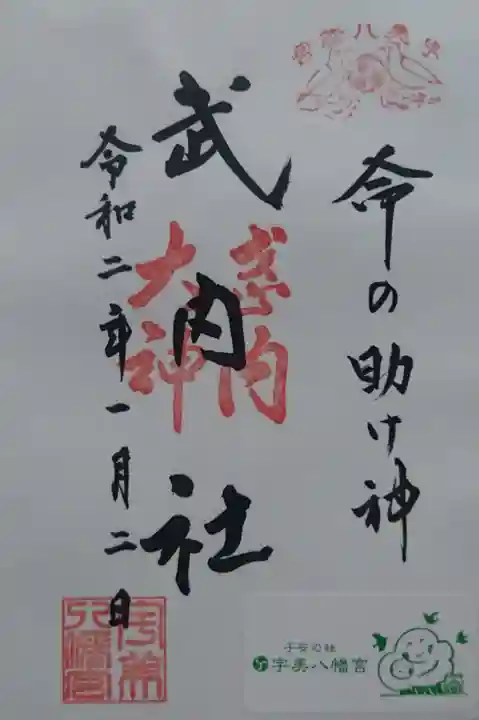 命の助け神
武内社
武内
大神
令和二年一月二日
宇美
八幡宮
子安の杜
宇美八幡宮